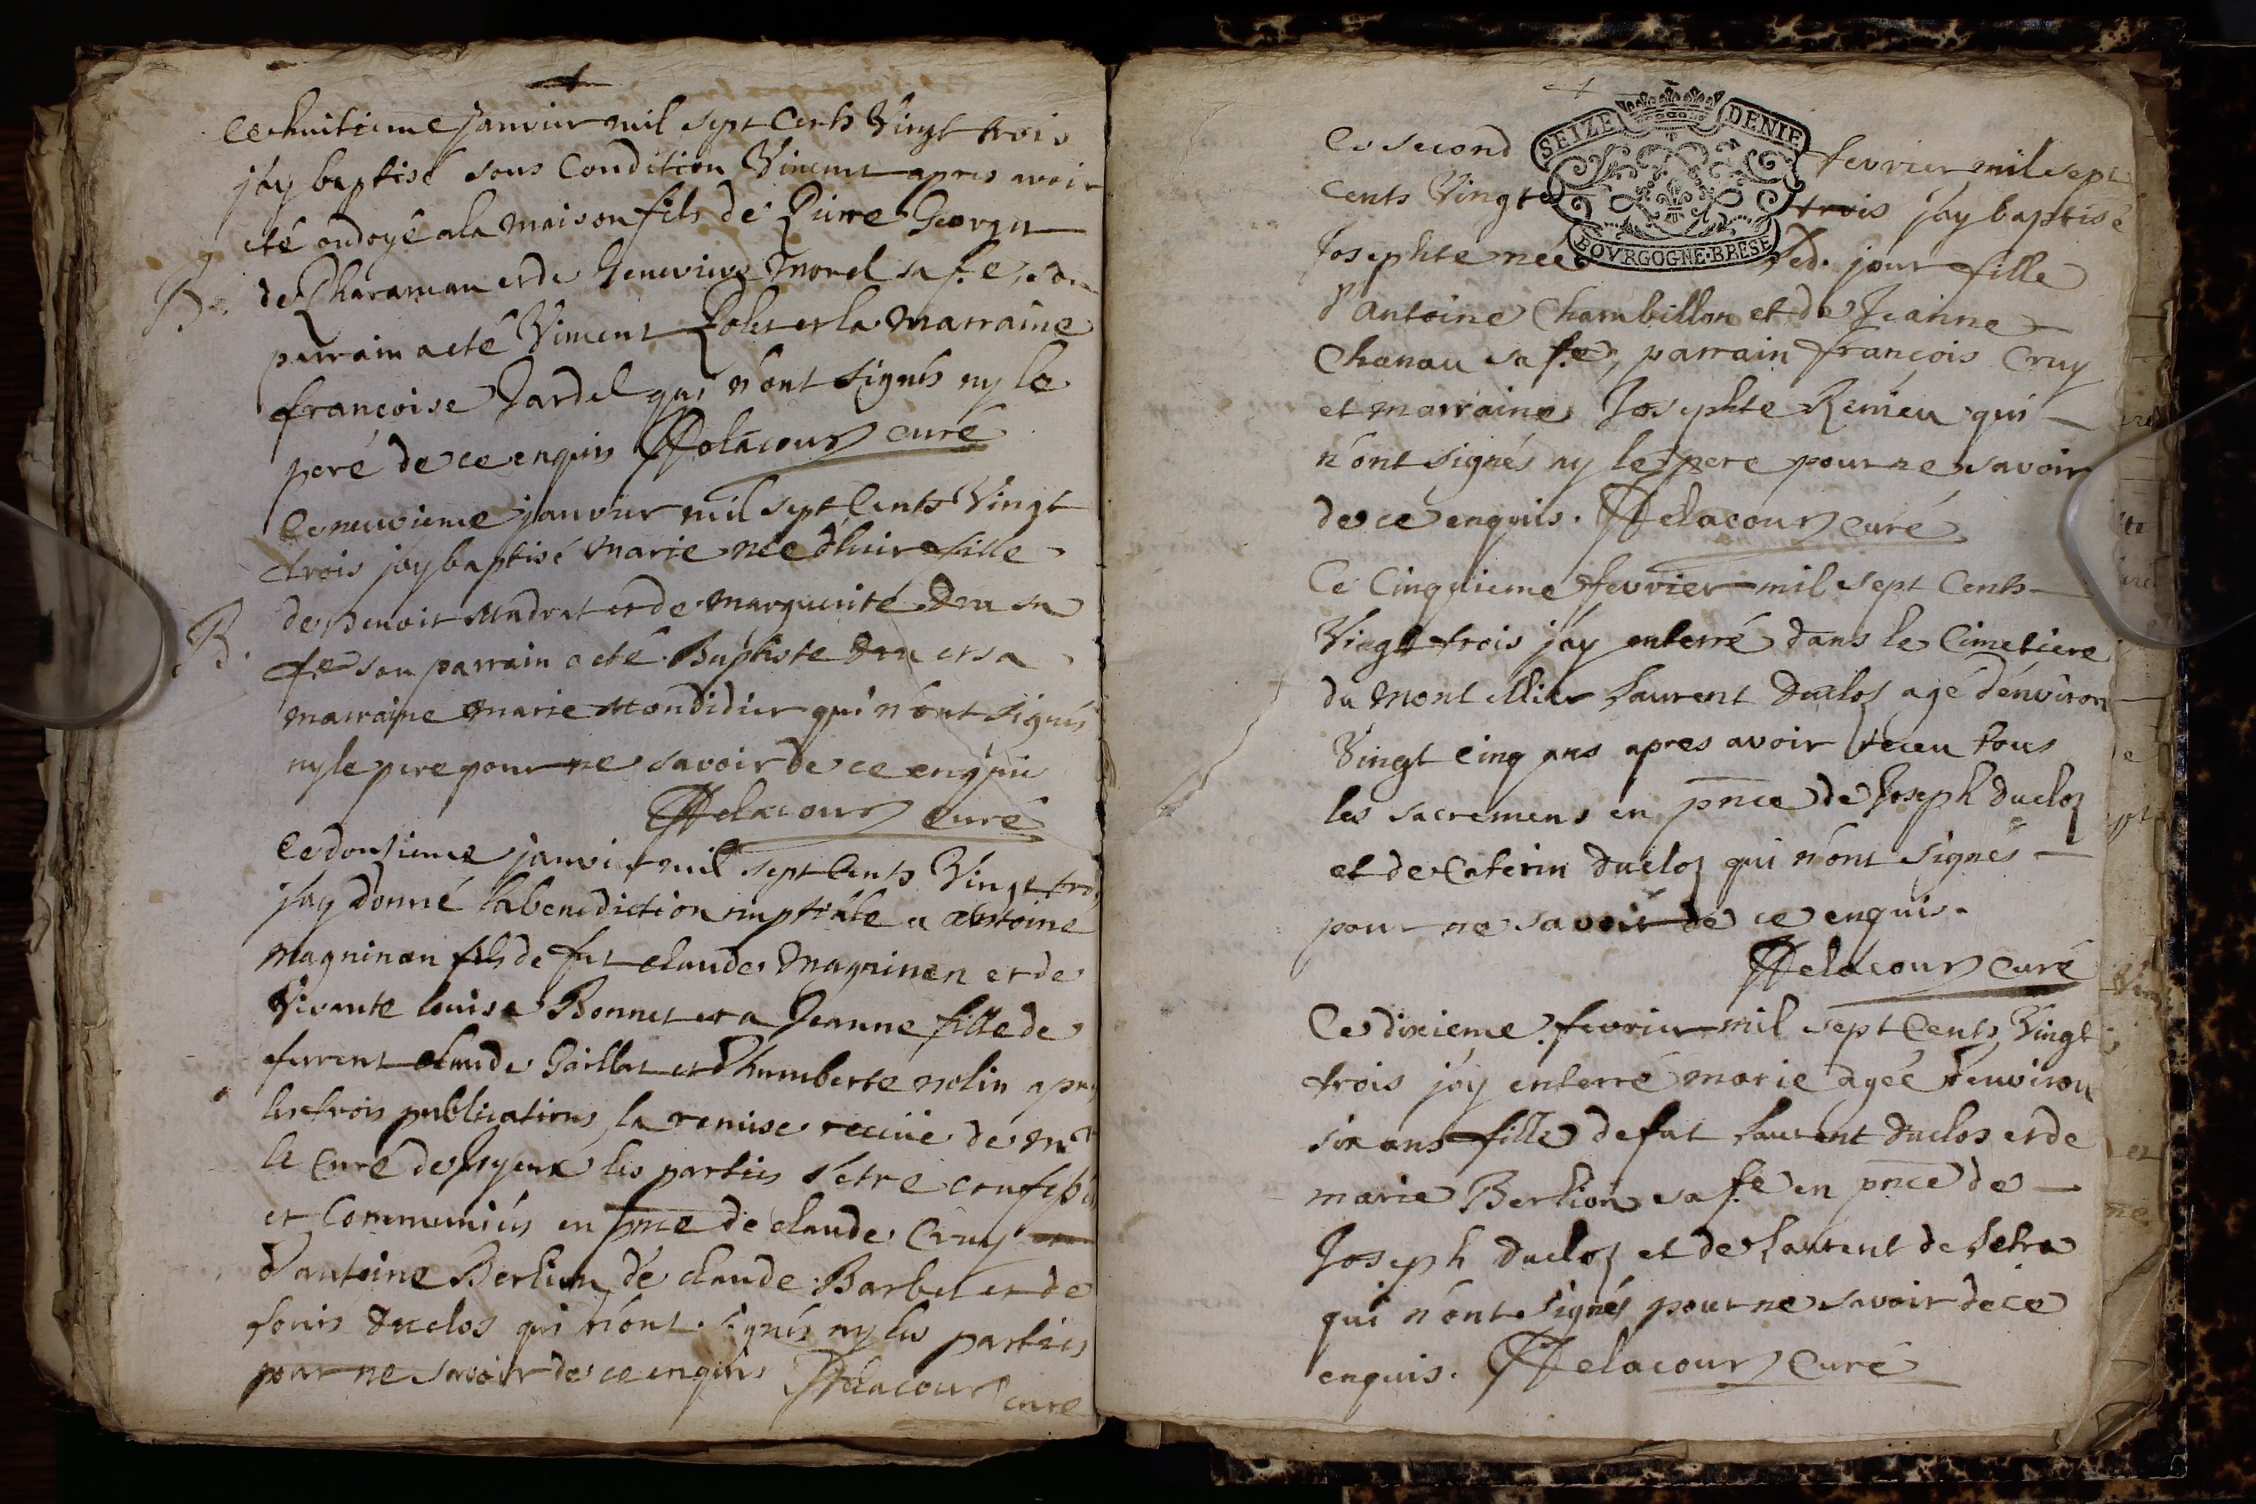 Ce huitieme janvier mil sept Cents Vingt trois
j'ay baptisé sous Condition Vincent apres avoir
eté ondoyé a la maison fils de Pierre Georget
de Pharaman et de Genevieve Morel sa fe, son
parrain a eté Vincent Polet et la marraine
françoise Jardel qui n'ont signés ny le
peré de ce enquis Delacour curé
B.
Ce neuvieme janvier mil sept Cents Vingt
trois j'ay baptisé marie née d'hier fille
de Benoit Mudret et de marguerité Dru sa
fe son parrain a eté Baptiste Dru et sa
marraine marie Mondidier qui n'ont signés
ny le pere pour ne savoir de ce enquis
Delacour curé
B.
Ce dousieme janvier mil sept Cents Vingt trois
j'ay donné la benediction nuptiale a antoine
magninan fils de fut claude magninan et de
Vivante louise Bonnet et a Jeanne fille de
furent claude Gaillat et d'humberte molin apres
les trois publications, la remise receüe de mr
le Curé de les parties s'etre confessés
et Communiés en pnce de claude Cruy
d'antoine Berlion de claude Barbet et de
Duclos qui n'ont signés ny les parties
pour ne savoir de ce enquis Delacour
curé
SEIZE DENIE
BOVRGOGNE·BRESE
Ce second fevrier mil sept
Cents Vingt trois j'ay baptisé
Josephte neé led. jour fille
d'antoine Chambillon et de Jeanne
Chanau sa fe, parrain françois Cruy
et marraine Josephte Remeu qui
n'ont signés ny le pere pour ne savoir
de ce enquis. Delacour curé
Ce Cinquieme fevrier mil sept Cents
Vingt trois j'ay enterré dans le Cimetiere
du mont ellier laurent Duclos agé d'environ
Vingt cinq ans apres avoir receu tous
les sacremens en pnce de Joseph duclos
et de Caterin duclos qui n'ont signés
pour ne savoir de ce enquis.
Delacour curé
Ce dixieme fevrier mil sept Cents Vingt
trois j'ay enterré marie agée d'environ
six ans fille de fut laurent duclos et de
marie Berlion sa fe en pnce de
Joseph duclos et de laurent de letra
qui n'ont signés pour ne savoir de ce
enquis. Delacour Curé